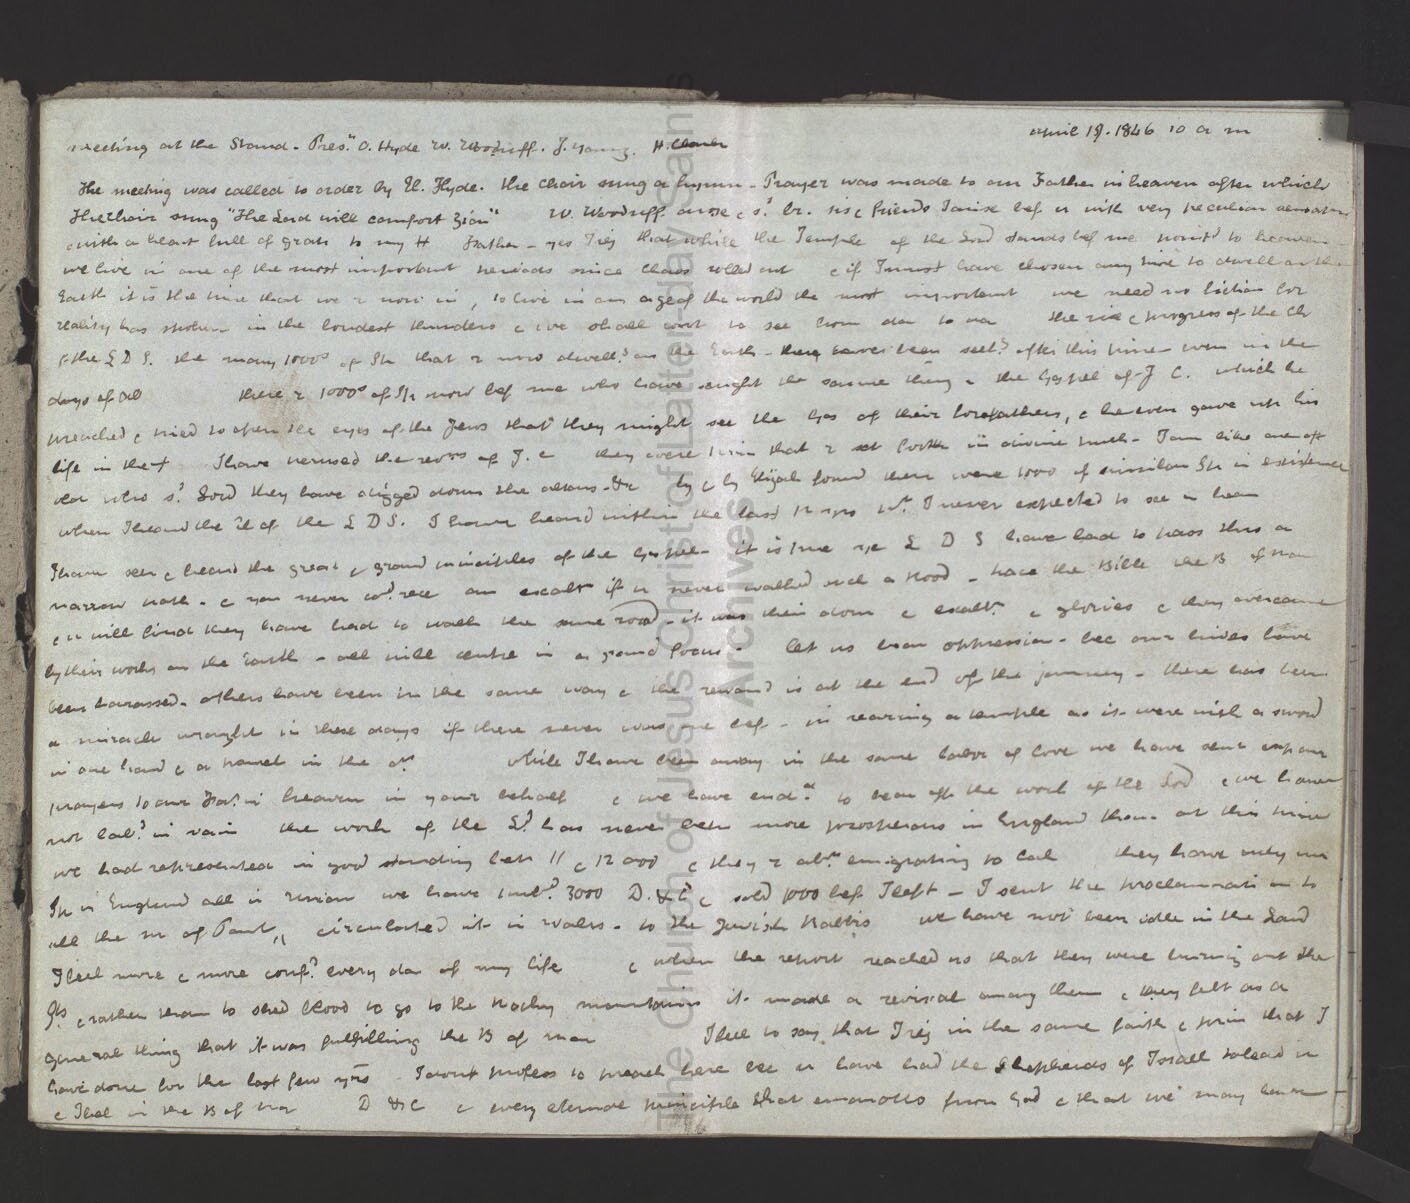 april 19. 1846 10 a m
meeting at the Stand - Pres.t O. Hyde W. Woodruff. J. Young.
The meeting was called to order by El. Hyde. the choir sung a hymn - Prayer was made to our Father in heaven after which
The choir sung "The Lord will comfort Zion" W. Woodruff arose & sd. br. sis & friends I arise bef u with very peculiar sensations
& with a heart full of grat to my H Father - yes I rej that while the Temple of the Lord stands bef me point.d to heaven
we live in one of the most important periods since chaos rolled out & if I must have chosen any time to dwell on the
Earth it is the time that we r now in, to live in an age of the world the most important we need no fiction for
reality has spoken in the loudest thunders & we shall cont to see from da to da the rise & progress of the Ch
of the L D S. the many 1000s of Sts that r now dwell.g on the Earth - they have been seek.g after this time even in the
days of old there r 1000s of Sts now bef me who have sought the same thing r the Gospel of J C. which he
preached & tried to open the eyes of the Jews that they might see the of their forefathers, & he even gave up his
life in the I have perused the revns of J. C they were prin that r set forth in divine truth - I am like one of
old who sd. Lord they have digged down the altars - &c by & by Elijah found there were 7000 of similar Sts in existence
when I heard the El of the L D S. I have heard within the last 12 yrs wt. I never expected to see or hear
I have seen & heard the great & grand principles of the Gospel - it is true the L D S have had to pass thro a
narrow path - & you never cod. rece an exaltn if u never walked such a road - trace the Bible the B of Mor
& u will find they have had to walk the same road - it was their down & exaltn & glories & they overcame
by their works on the Earth - all will centre in a grand focus - let us bear oppression - bec our lives have
been harrassed. others have been in the same way & the reward is at the end of the journey - there has been
a miracle wrought in these days if there never was one bef - in rearing a temple as it were with a sword
in one hand & a trowel in the or while I have been away in the same labor of love we have sent up our
prayers to our Fat. in heaven in your behalf & we have end.d to bear off the work of the Lord & we have
not lab.d in vain the work of the Ld has never been more prosperous in England than at this time
we had represented in good standing betn 11 & 12 000 & they r abt emigrating to Cal they have only
in England all in we have 3000 D. & C & sold 1000 bef I left - I sent the proclamation to
all the m of Parlt, circulated it in Wales - to the Jewish Rabbis we have not been idle in the Land
I feel more & more conf.t every day of my life & when the report reached us that they were turning out the
Sts & rather than to shed blood to go to the Rocky mountains it made a revival among them & they felt as a
general thing that it was fulfilling the B of Mor I feel to say that I rej in the same faith & prin that I
have done for the last few yrs I dont profess to preach here bec u have had the Shepherds of Israel to lead u
& I bel in the B of Mor D & C & every eternal principle that emanates from God & that we may have
The Church of Jesus Christ of Latter-day Saints
Archives